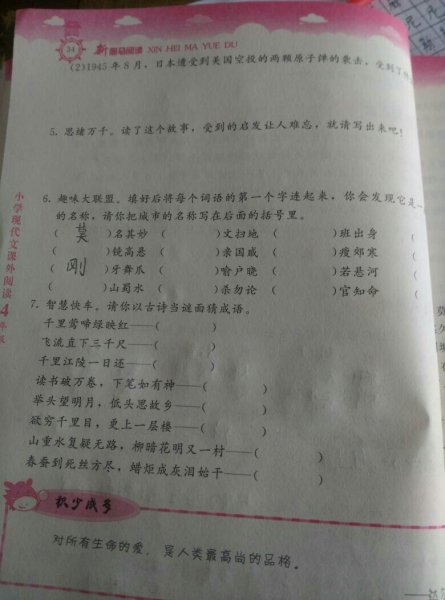 34 新黑马阅读 XIN HEI MA YUE DU
(2)1945年8月，日本遭受到美国空投的两颗原子弹的袭击，受到了
5. 思绪万千。读了这个故事，受到的启发让人难忘，就请写出来吧！
6. 趣味大联盟。填好后将每个词语的第一个字连起来，你会发现它是一
的名称，请你把城市的名称写在后面的括号里。
( 莫 )名其妙 ( )文扫地 ( )班出身 (
( )镜高悬 ( )亲国戚 ( )瘦郊寒 (
( 刚 )牙舞爪 ( )喻户晓 ( )若悬河 (
( )山蜀水 ( )杀勿论 ( )官知命 (
7. 智慧快车。请你以古诗当谜面猜成语。
千里莺啼绿映红——( )
飞流直下三千尺——( )
千里江陵一日还——( )
读书破万卷，下笔如有神——( )
举头望明月，低头思故乡——( )
欲穷千里目，更上一层楼——( )
山重水复疑无路，柳暗花明又一村——( )
春蚕到死丝方尽，蜡炬成灰泪始干——( )
积少成多
对所有生命的爱，是人类最高尚的品格。
小学现代文课外阅读 4年级